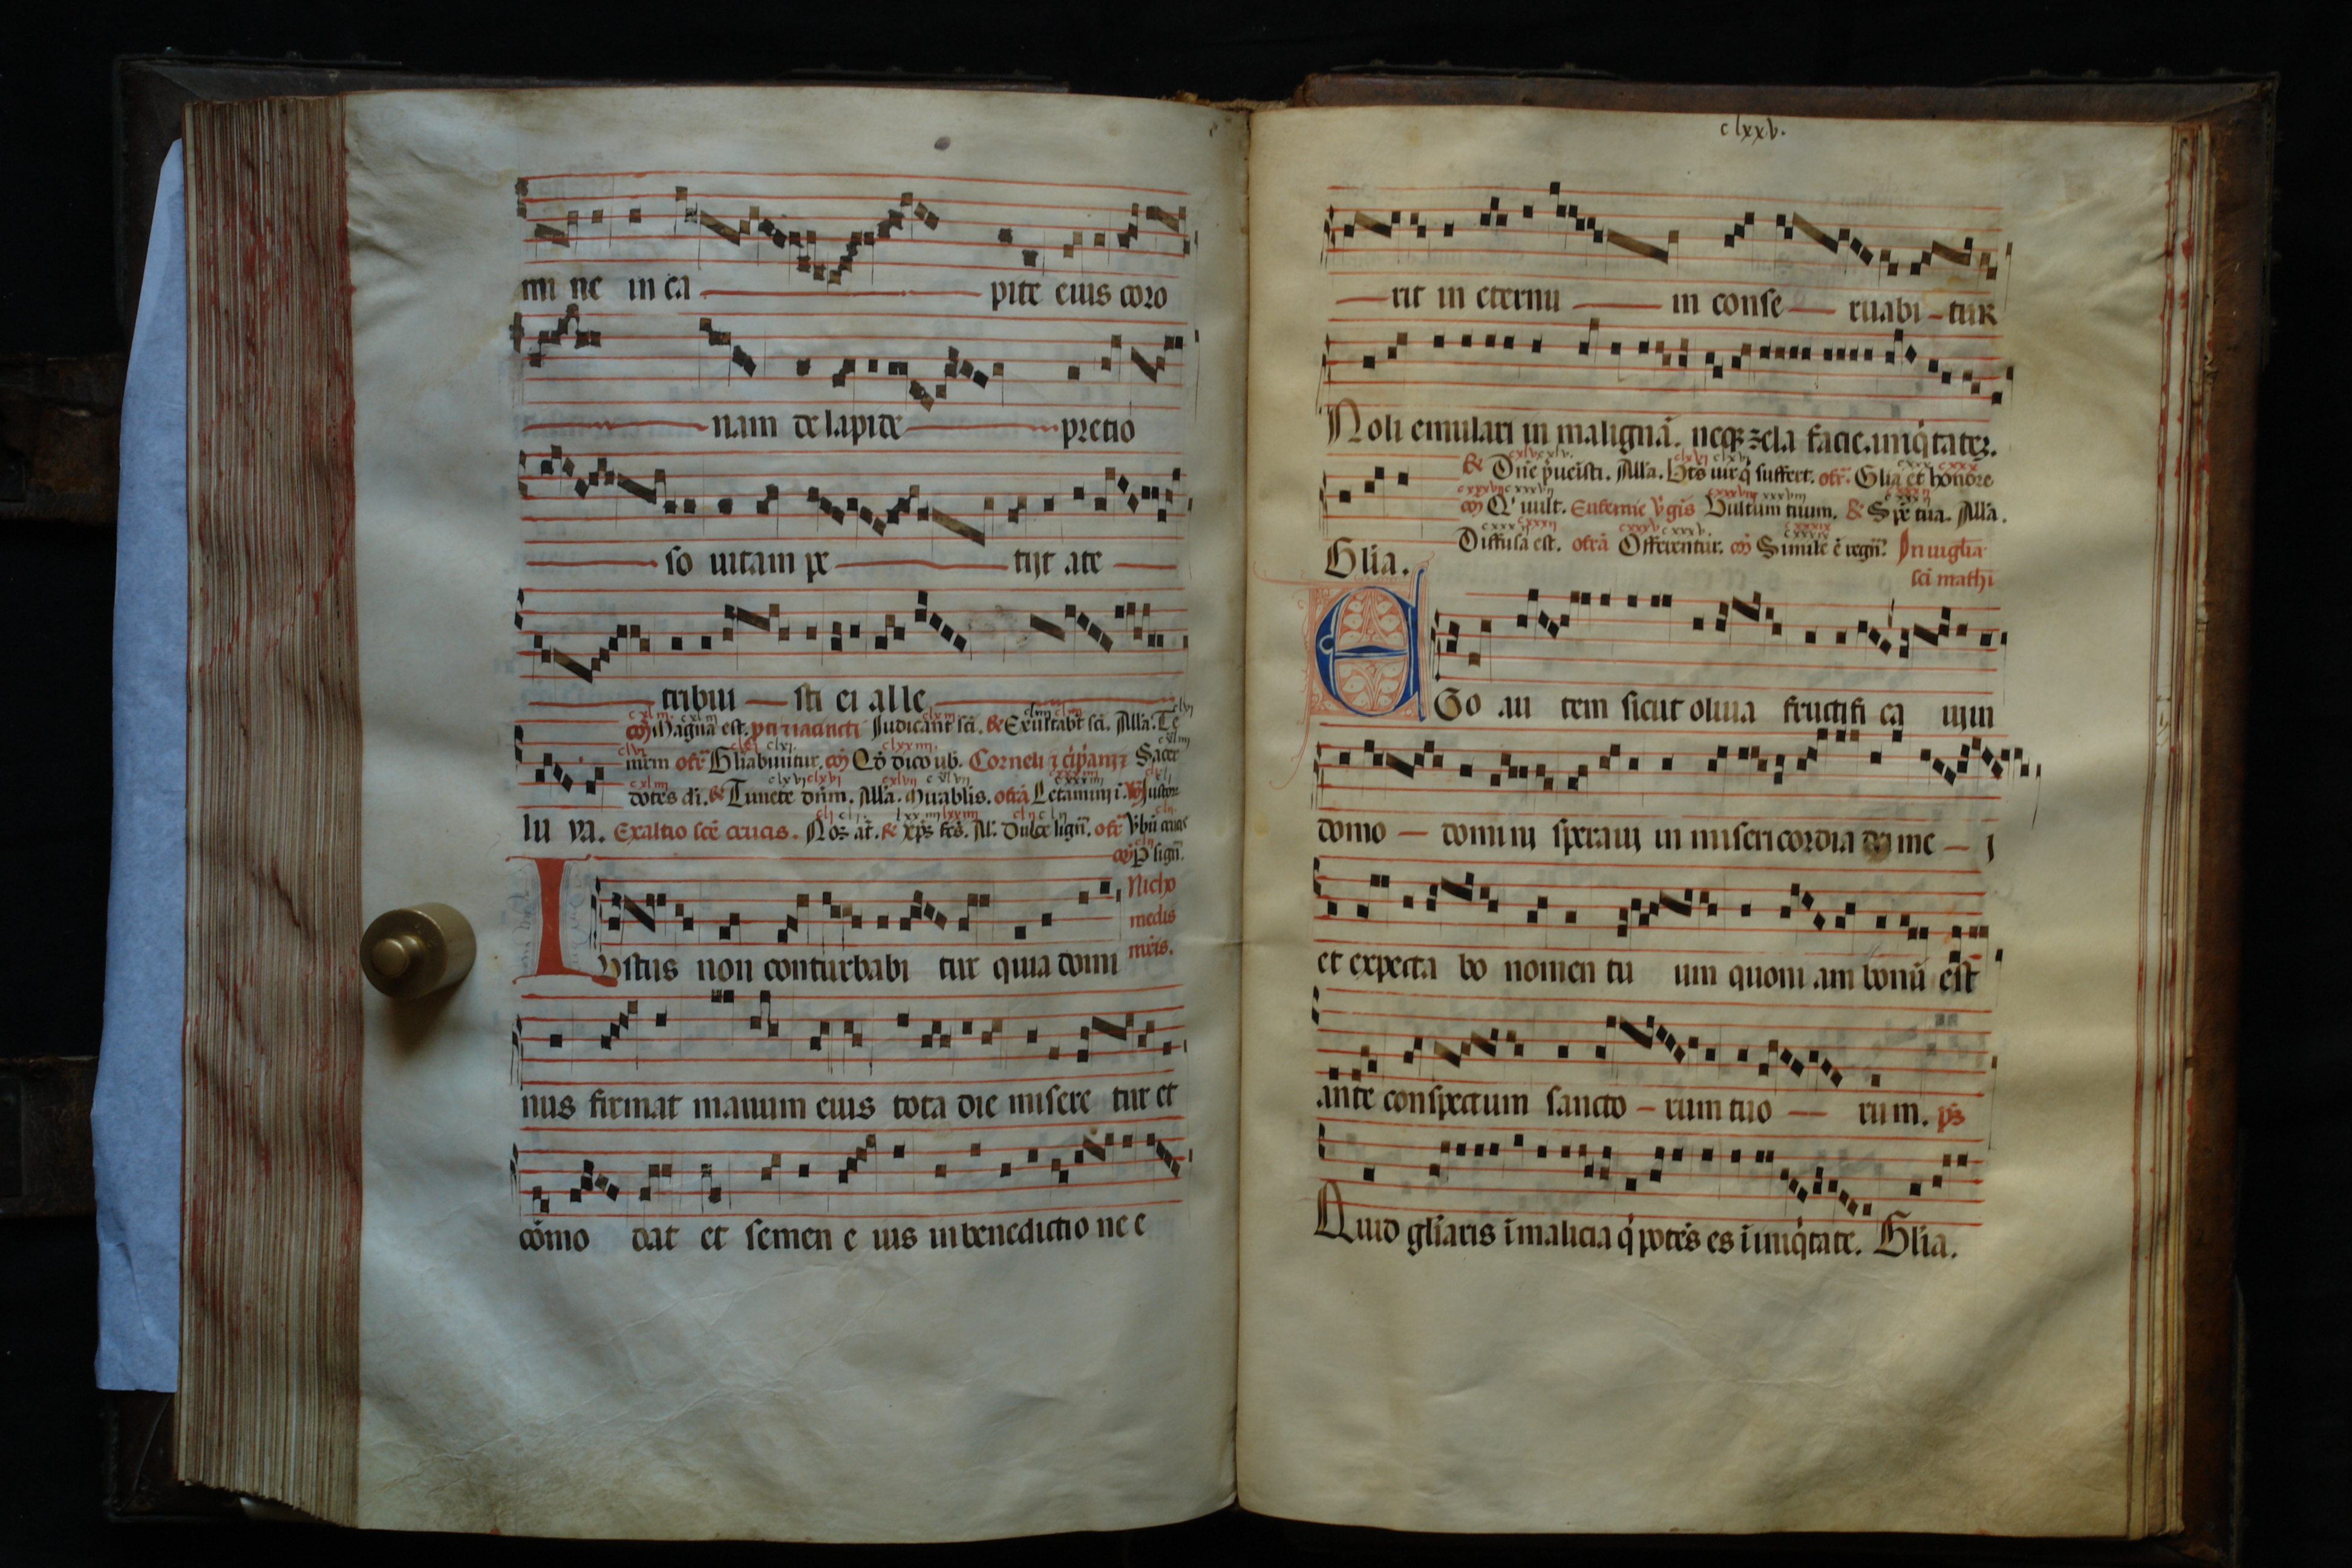 mi ne in ca pite eius coro
nam de lapide pretio
so uitam pe tijt a te
tribui sti ei alle
cōi Magna est. pti ⁊ iacincti Iudicant sci. & Exultabt sci. Alla. Te
mrm ofr Gliabuntur. cōi Qd dico ub. Corneli ⁊ cipani Sacer
dotes di. & Iunete dnm. Alla. Mirablis. ofrā Letamini i.
lu ya. Exaltio sce crucis. Nos at. & xps fcs. Al. Dulce lign. ofr
lign.
Nicho
medis
mris.
Iustus non conturbabi tur quia domi
nus firmat manum eius tota die misere tur et
cōmo dat et semen e ius in benedictio ne e
clxxv.
rit in eternu in conse ruabi tur
Noli emulari in malignā. neqz zela facie. iniqtatez.
& Dne pueisti. Alla. Bts uir q suffert. ofr. Glia et honore
cōi Q uult. Eufemie vgis Vultum tuum. & Spe tua. Alla.
Diffusa est. ofrā Offerentur. cōi Simile ē regn. In uiglia
Glia. sci mathi
EGo au tem sicut oliua fructifi ca uiin
domo domini speraui in misericordia dei me i
et expecta bo nomen tu um quoni am bonū est
ante conspectum sancto rum tuo rum. ps
Quid gliaris ī malicia q potes es ī iniqtate. Glia.